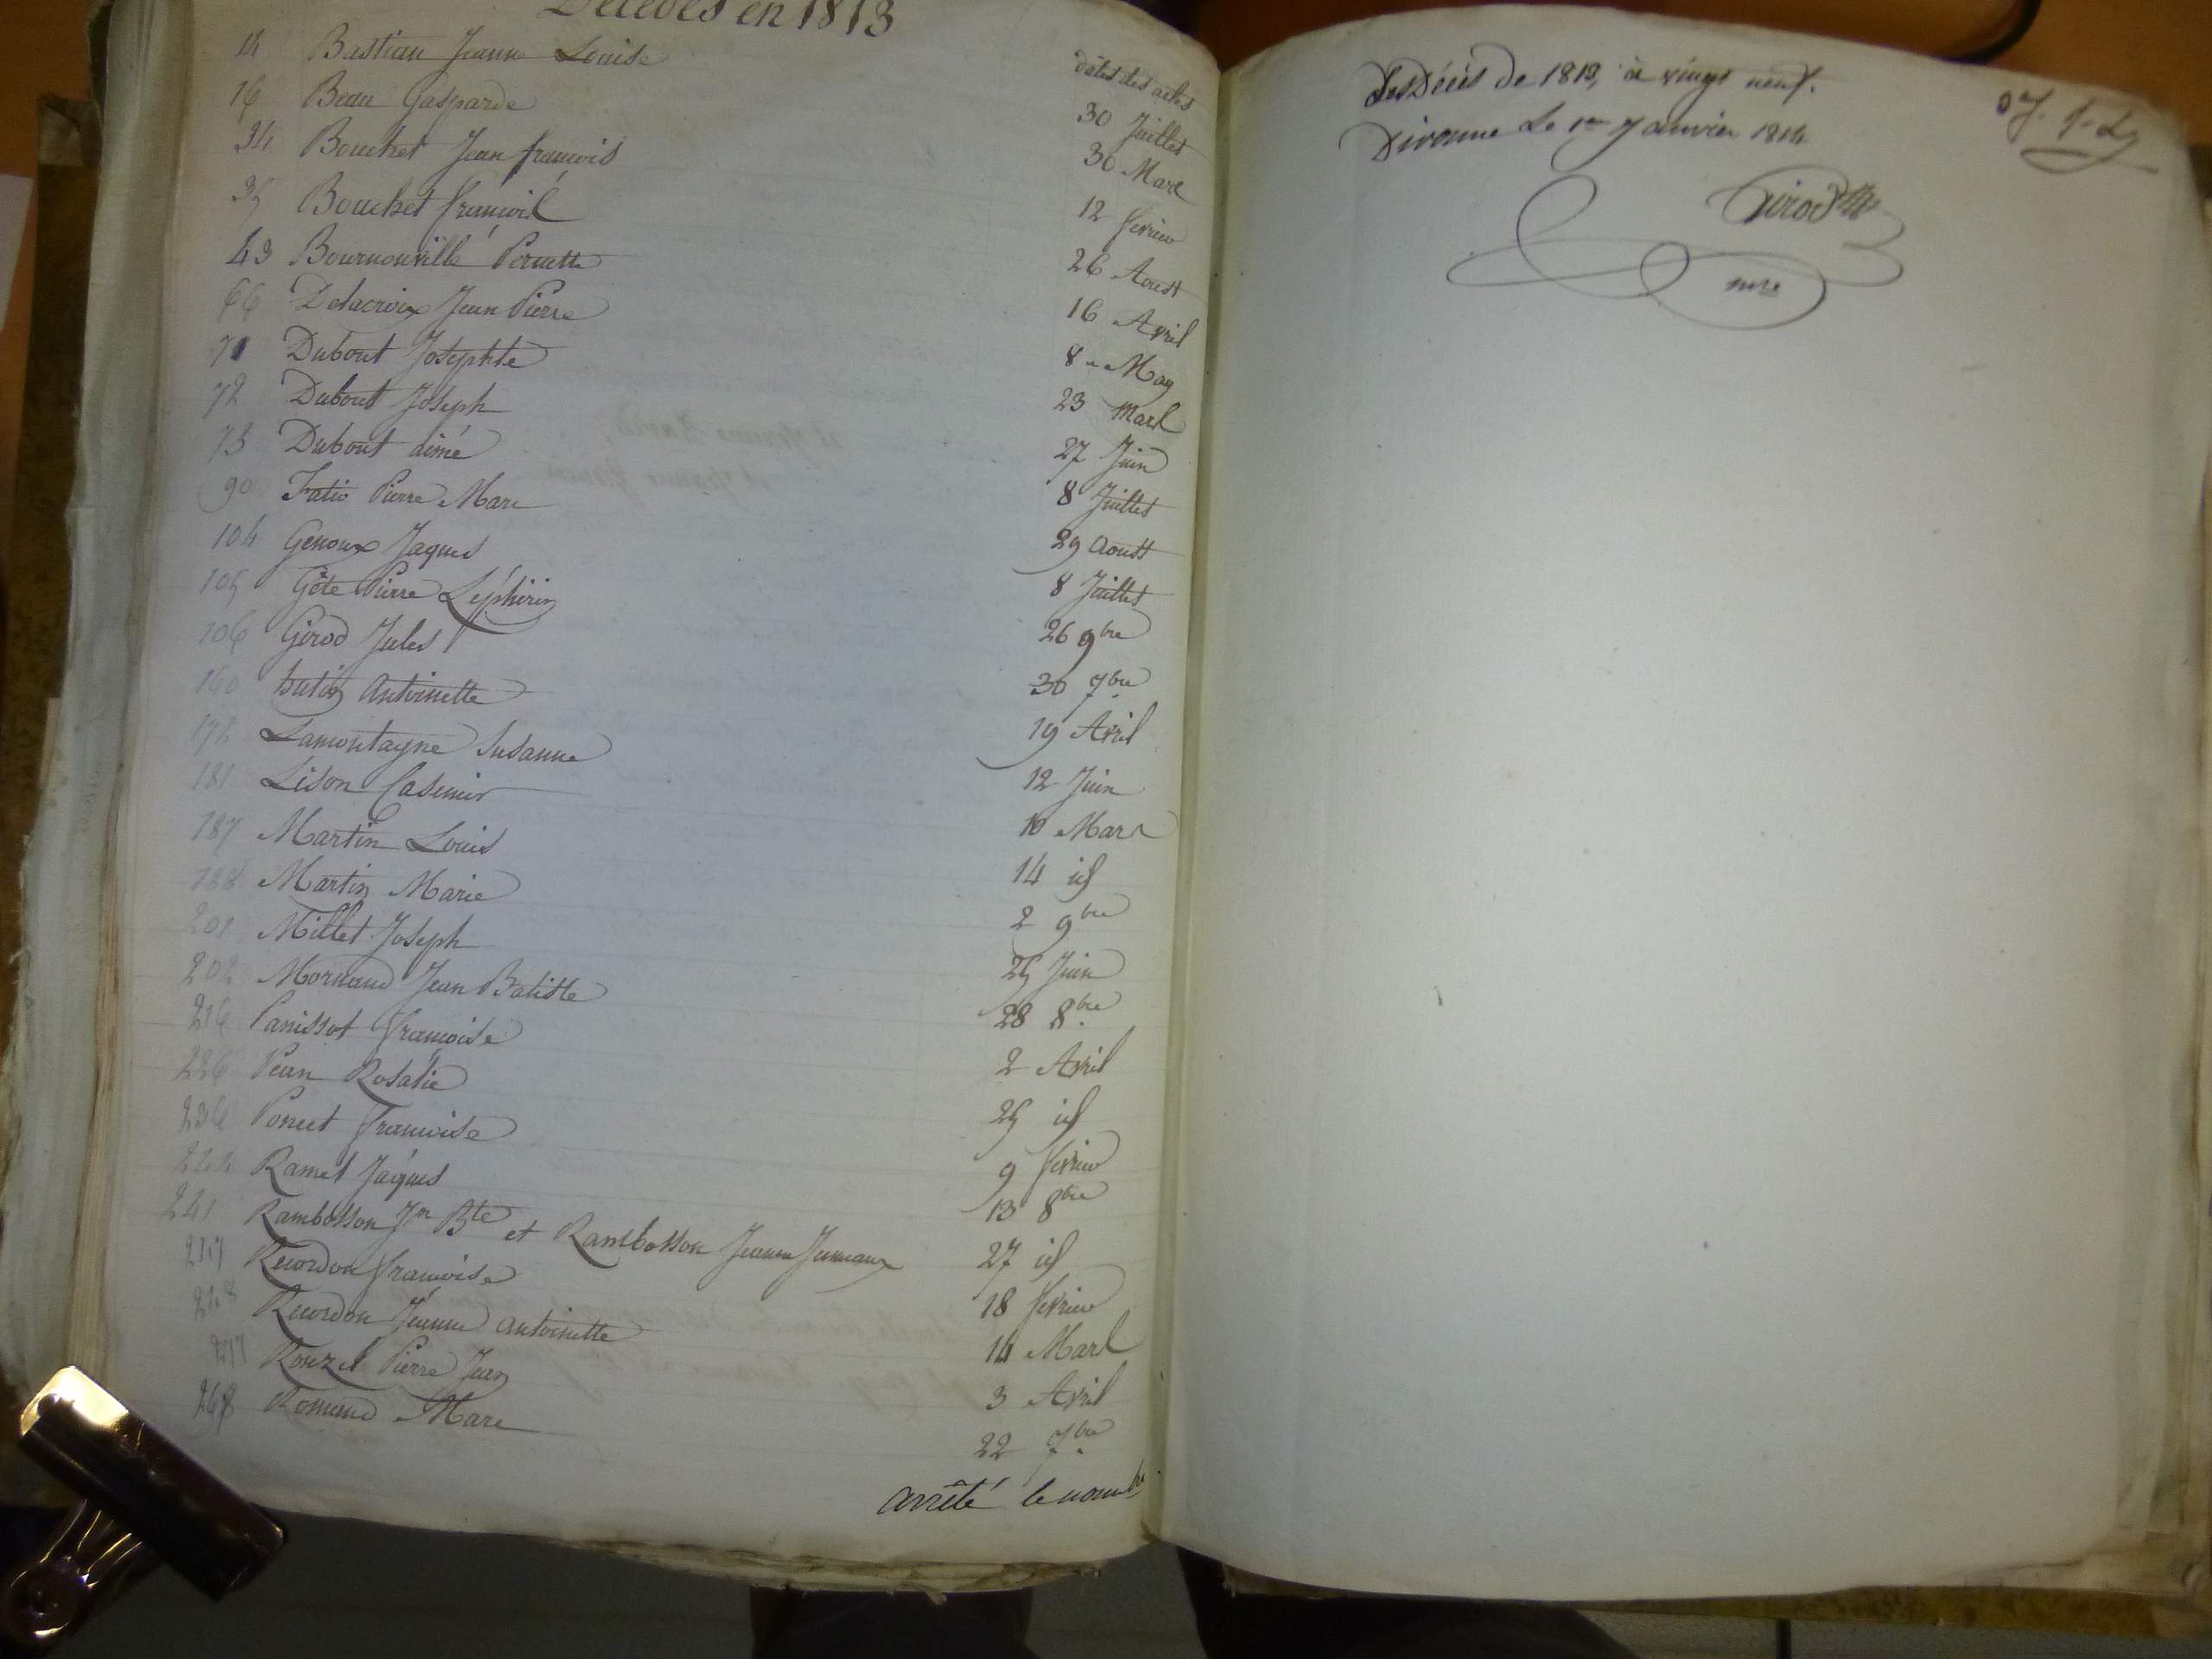 Décédés en 1813
dates des actes
14 Bastian Jeanne Louise 30 Juillet
16 Beau Gasparde 30 Mars
34 Bouchet Jean françois 12 fevrier
35 Bouchet françois 26 Aoust
43 Bournonville Pernette 16 Avril
66 Delacroix Jean Pierre 8 May
71 Dubout Josephte 23 Mars
72 Dubout Joseph 27 Juin
73 Dubout aimé 8 Juillet
90 Fatio Pierre Marc 29 Aoust
104 Genoux Jaques 8 Juillet
105 Pierre 26 9bre
106 Girod Jules 30 7bre
160 hutin Antoinette 19 Avril
Lamontagne Susanne 12 Juin
181 Lison Casimir 10 Mars
187 Martin Louis 14 id
188 Martin Marie 2 9bre
201 Millet Joseph 25 Juin
202 Mornand Jean Batiste 28 8bre
216 Panissot françoise 2 Avril
226 Pean Rosalie 25 id
236 Poncet françoise 9 fevrier
Ramel Jaques 13 8bre
241 Rambosson Jn Bte et Rambosson Jeanne Jumeaux 27 id
Recordon françoise 18 fevrier
Recordon Jeanne Antoinette 14 Mars
Rouzet Pierre Jean 3 Avril
268 Romand Marc 22 7bre
arrêté le nombre
des Décès de 1813, à vingt neuf.
Divonne Le 1er Janvier 1814
Girod
mre